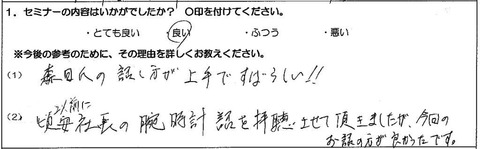 1. セミナーの内容はいかがでしたか? 〇印を付けてください。
・とても良い ・良い ・ふつう ・悪い
※今後の参考のために、その理由を詳しくお教えください。
(1) 森田氏の話し方が上手ですばらしい!!
(2) 以前に
社長の腕時計 話を拝聴させて頂きましたが、今回の
お話の方が良かったです。